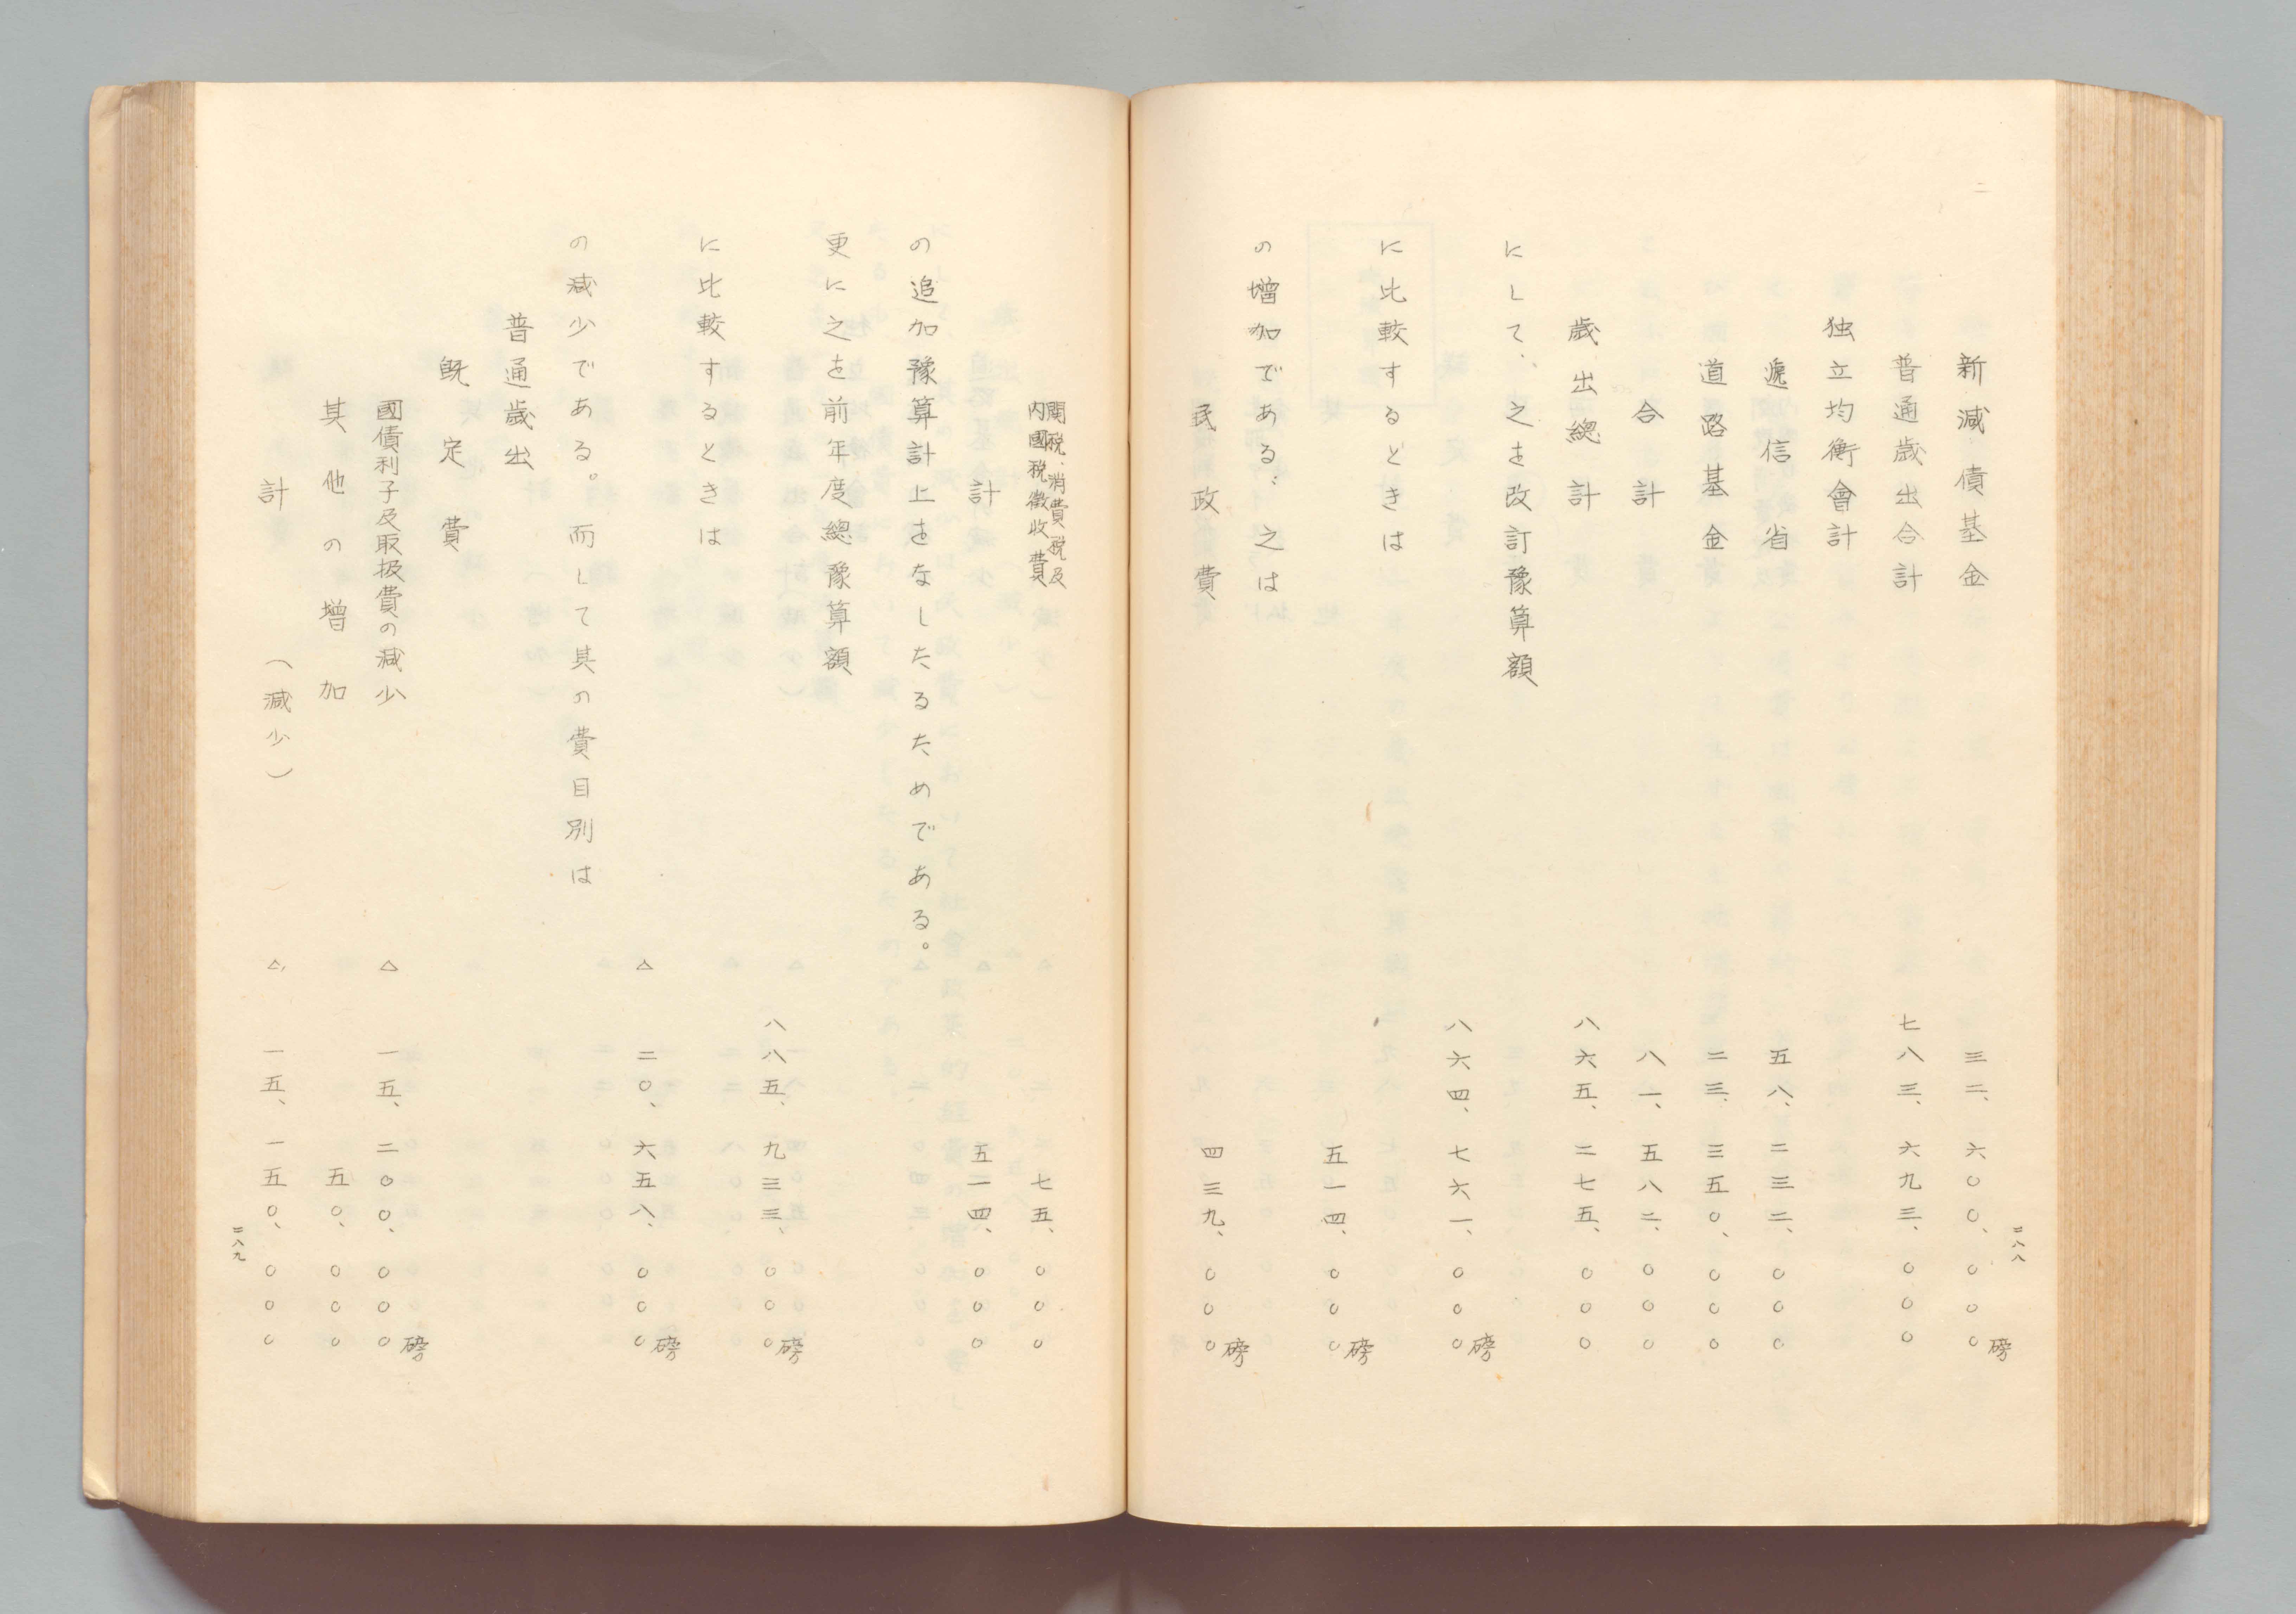 二八八
新減債基金 三二、六〇〇、〇〇〇磅
普通歳出合計 七八三、六九三、〇〇〇
独立均衡會計
遞信省 五八、二三二、〇〇〇
道路基金 二三、三五〇、〇〇〇
合計 八一、五八二、〇〇〇
歳出總計 八六五、二七五、〇〇〇
にして、之を改訂豫算額
八六四、七六一、〇〇〇磅
に比較するときは
五一四、〇〇〇磅
の増加である、之は
民政費 四三九、〇〇〇磅
関税、消費税及
内國税徴收費 七五、〇〇〇
計 五一四、〇〇〇
の追加豫算計上をなしたるためである。
更に之を前年度總豫算額
八八五、九三三、〇〇〇磅
に比較するときは
△ 二〇、六五八、〇〇〇磅
の減少である。而して其の費目別は
普通歳出
既定費
國債利子及取扱費の減少 △ 一五、二〇〇、〇〇〇磅
其他の増加 五〇、〇〇〇
計 (減少) △ 一五、一五〇、〇〇〇
二八九